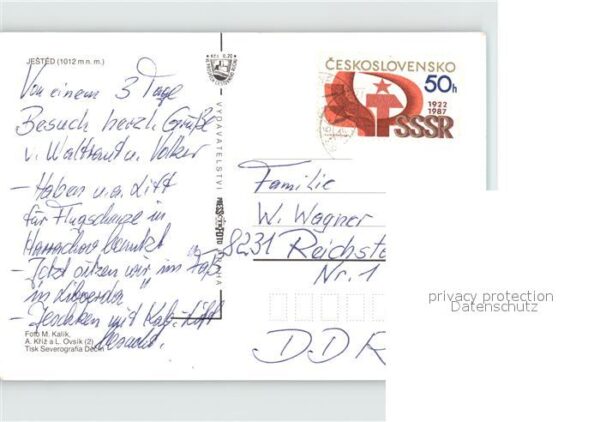 JEŠTĚD (1012 m n. m.)
Von einem 3 Tage
Besuch herzl. Grüße
v. Waltraut u. Volker
- Haben u.a. Lift
für Flugschanze in
Harrachov benutzt
- Jetzt sitzen wir im "Faß
in Liberec"
- Jeschken mit Kab.-Lift
besucht.
Foto M. Kalik,
A. Kříž a L. Ovsík (2)
Tisk Severografia Děčín
Kčs 0,70
VYDAVATELSTVÍ
PRESSFOTO
PRAHA
ČESKOSLOVENSKO
50h
1922
1987
SSSR
Familie
W. Wagner
8231 Reichsta
Nr. 1
DDR
privacy protection
Datenschutz